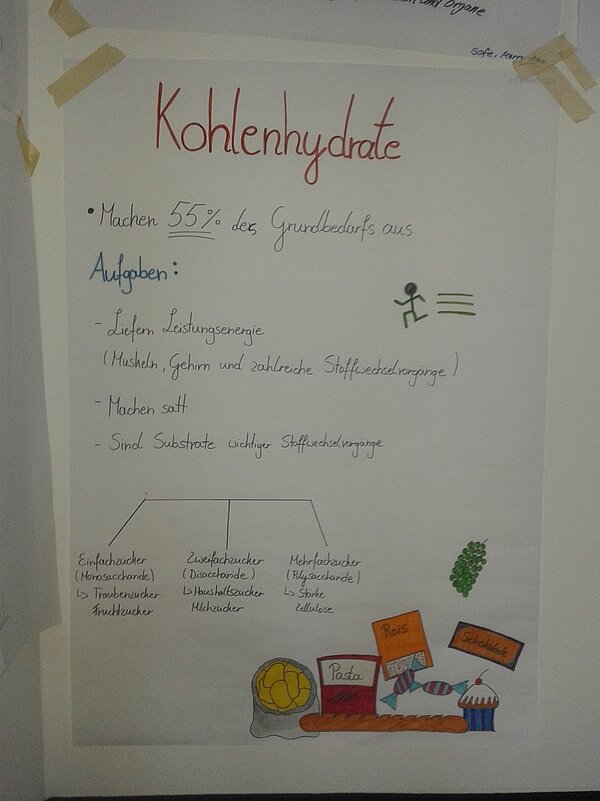 und Organe
Sofie,
Kohlenhydrate
• Machen 55% des Grundbedarfs aus
Aufgaben:
- Liefern Leistungsenergie
(Muskeln, Gehirn und zahlreiche Stoffwechselvorgänge)
- Machen satt
- Sind Substrate wichtiger Stoffwechselvorgänge
Einfachzucker
(Monosaccharide)
↳ Traubenzucker
Fruchtzucker
Zweifachzucker
(Disaccharide)
↳ Haushaltszucker
Milchzucker
Mehrfachzucker
(Polysaccharide)
↳ Stärke
Zellulose
Reis
Schokolade
Pasta